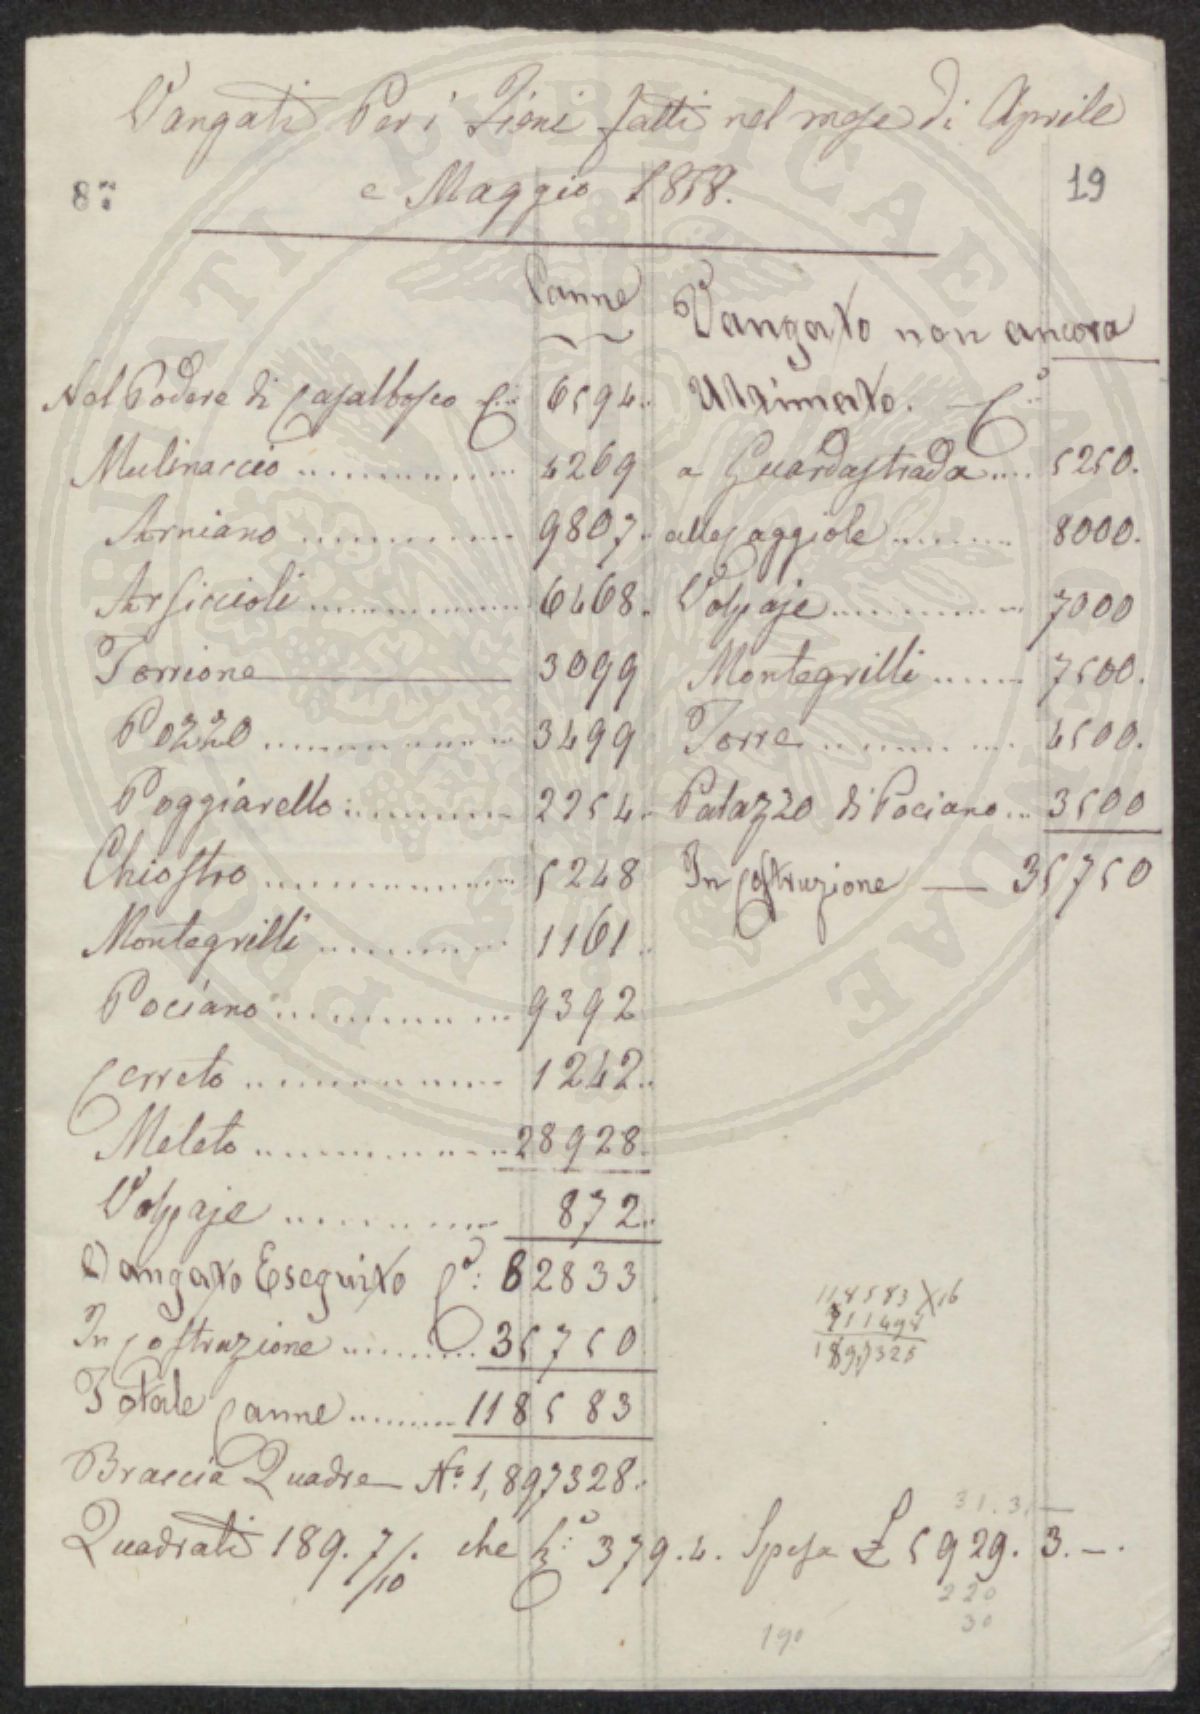 Vangati Per i Fieni fatti nel mese di Aprile
e Maggio 1858.
8.ª
19
Canne
Nel Podere di Casalbosco C.e 6594.
Mulinaccio ............ 4269
Arniano ............ 9807.
Arsiccioli ............ 6468.
Torrione ——— 3099
Pozzo ............ 3499
Poggiarello: ............ 2254.
Chiostro ............ 5248
Montegrilli ............ 1161.
Pociano ............ 9392
Cerreto ............ 1242.
Meleto ............ 28928.
Volpaje ............ 872.
Vangato Eseguito C.e: 82833
In Costruzione ......... 35750
Totale Canne ......... 118583
Braccia Quadre — N.º 1,897328.
Quadrati 189. 7/10. che 379.4. Spesa £ 5929. 3. —.
Vangato non ancora
Ultimato. C.e
a Guardastrada .... 5250.
alle Caggiole ........ 8000.
Volpaje ............ 7000
Montegrilli ...... 7500.
Torre ............ 4500.
Palazzo di Pociano ... 3500
In Costruzione —— 35750
118583 X 16
711498
1897328
31.3. —
220
30
190
PVBLICAE